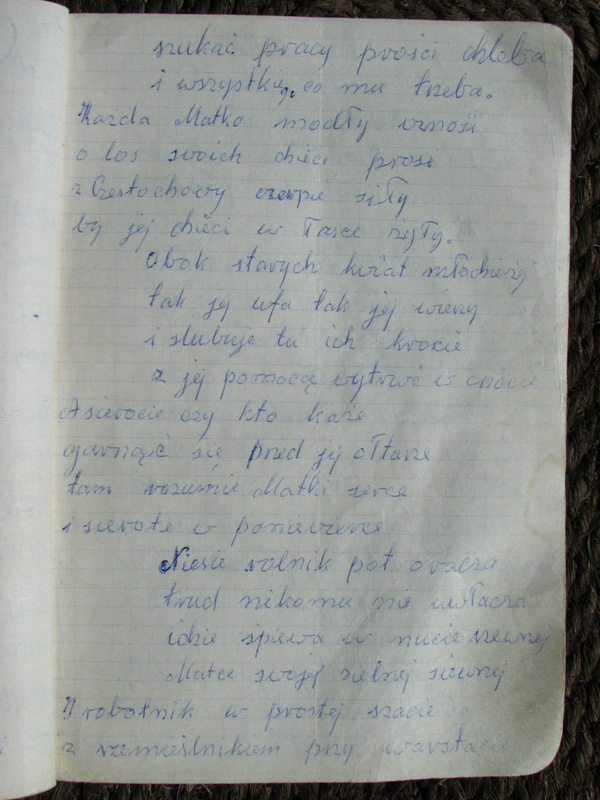 szukać pracy prości chleba
i wszystkiego co mu trzeba.
Każda Matka modły wznosi
o los swoich dzieci prosi
z Częstochowy czerpie siły
by jej dzieci w łasce żyły.
Obok starych kwiat młodzieży
tak jej ufa tak jej wierzy
i slubuje tu ich krocie
z jej pomocą wytrwać w cnocie
A sierocie czy kto każe
garnąć się przed jej ołtarze
tam rozumie Matki serce
i sierote w poniewierce
Niesie rolnik pot oracza
trud nikomu nie uwłacza
idzie śpiewa w nucie rzewnej
Matce swojej zielnej siewnej
I robotnik w prostej szacie
z rzemieślnikiem przy warstacie